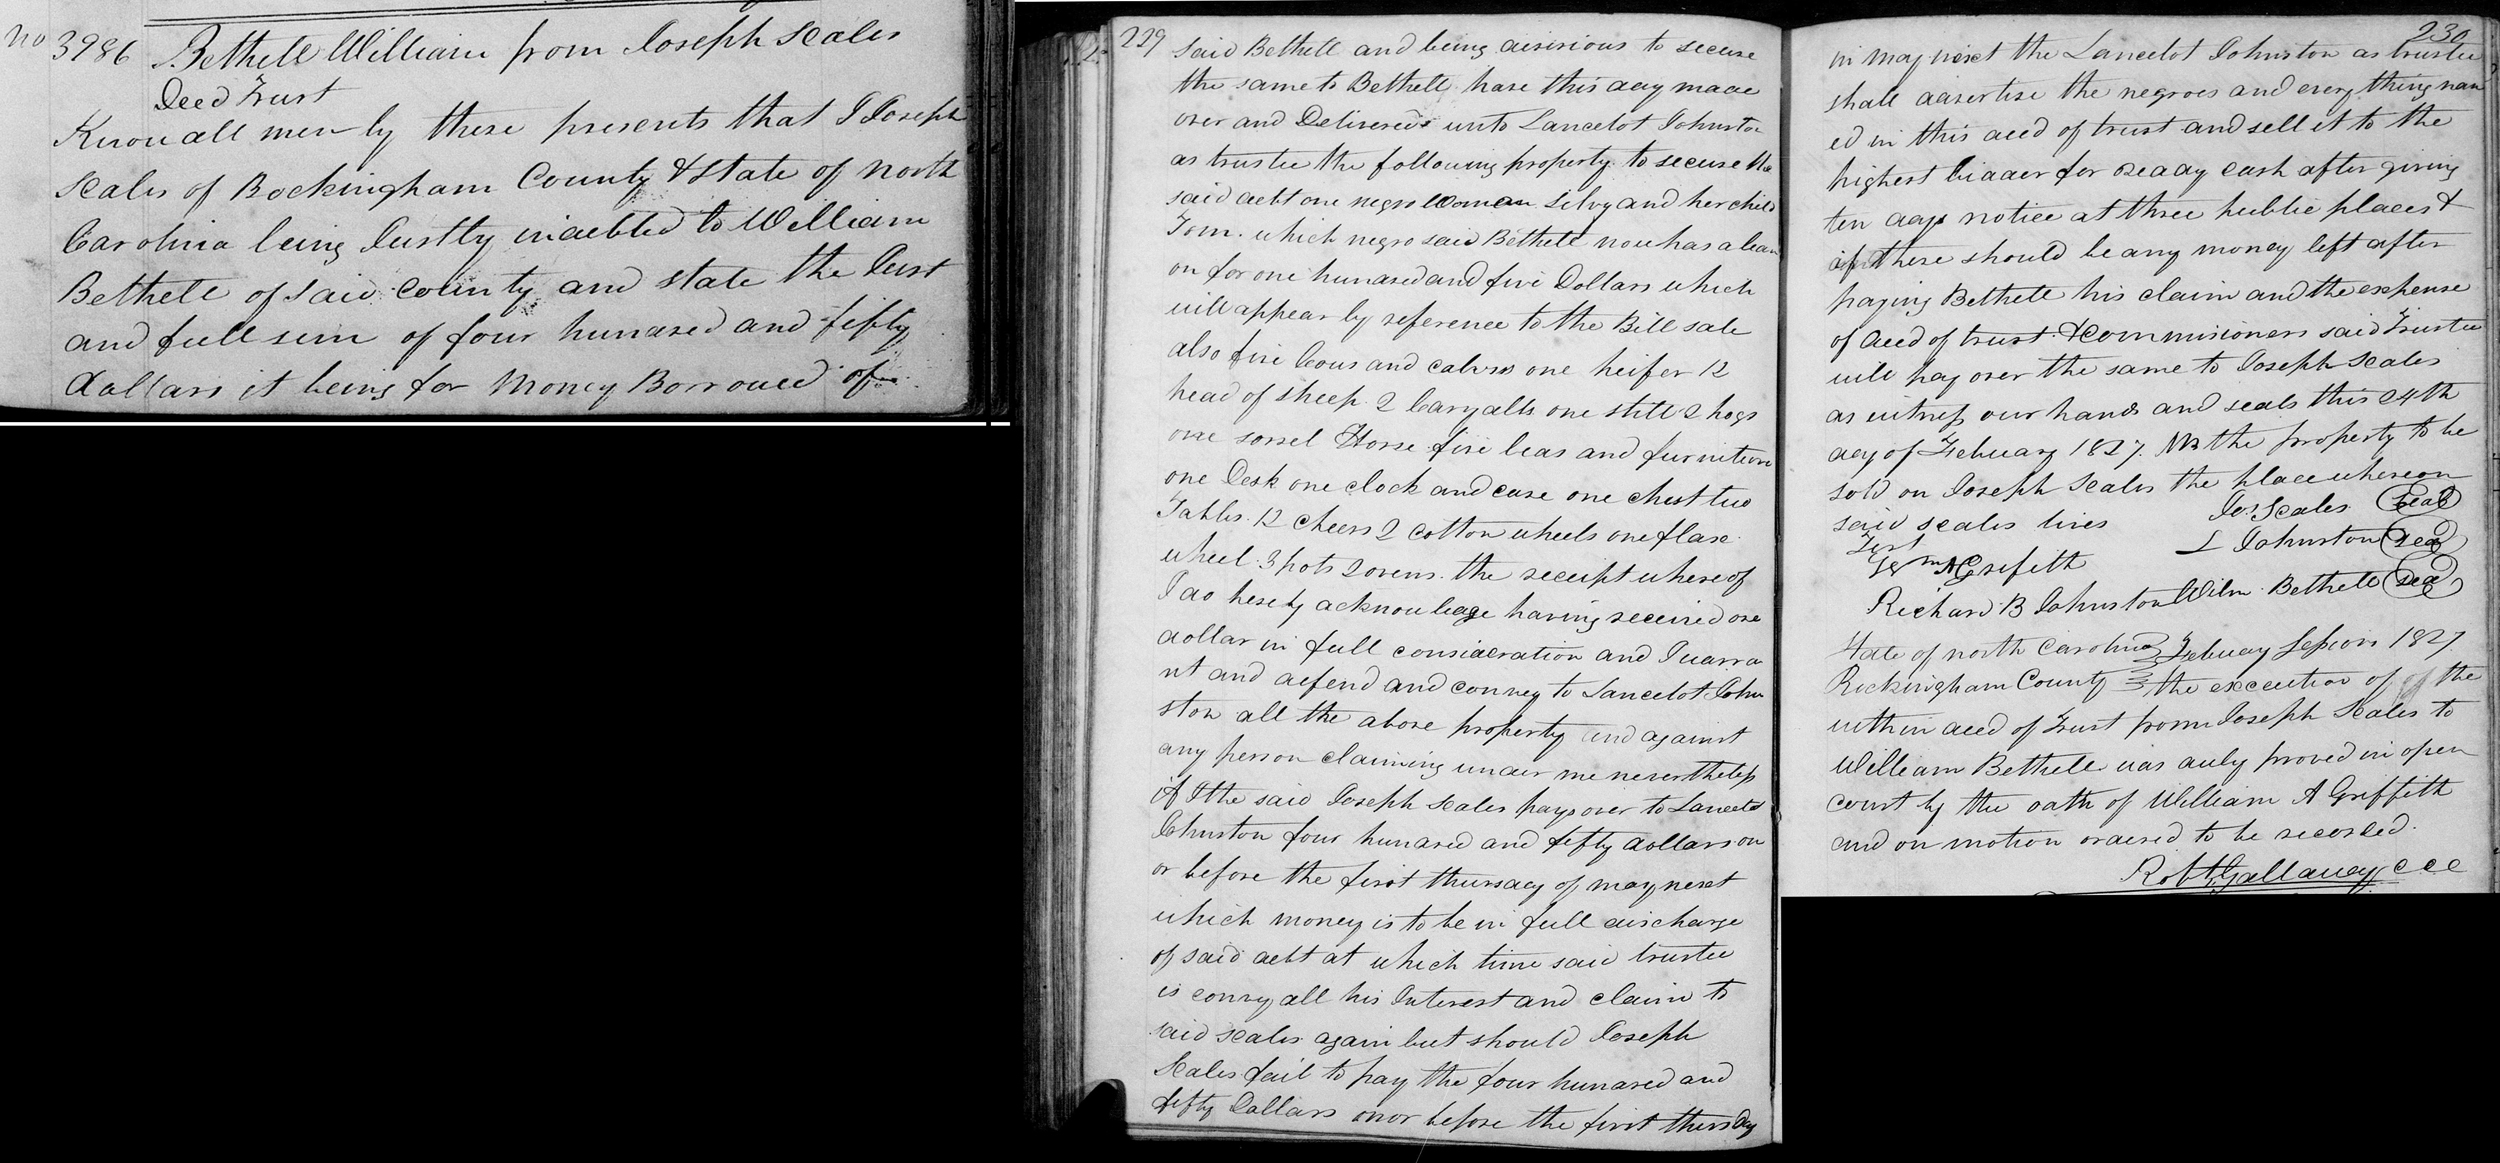 No 3986 Bethell William from Joseph Scales
Deed Trust
Know all men by these presents that I Joseph
Scales of Rockingham County & State of North
Carolina being Justly indebted to William
Bethell of said county and state the Just
and full sum of four hundred and fifty
dollars it being for Money Borrowed of
229
said Bethell and being desirious to secure
the same to Bethell have this day made
over and Delivered unto Lancelot Johnston
as trustee the following property to secure the
said debt one negro woman Silvy and her child
Tom. which negro said Bethell now has a lean
on for one hundred and five Dollars which
will appear by reference to the Bill sale
also five Cows and calves one heifer 12
head of sheep 2 Caryalls one still 2 hogs
one sorrel Horse five beds and furniture
one Desk one clock and case one chest two
Tables 12 cheers 2 cotton wheels one flax
wheel 3 pots 2 ovens. the receipt whereof
I do hereby acknowledge having received one
dollar in full consideration and I warra
nt and defend and convey to Lancelot John
ston all the above property and against
any person claiming under me nevertheless
if I the said Joseph Scales pays over to Lancelot
Johnston four hundred and fifty dollars on
or before the first thursday of may next
which money is to be in full discharge
of said debt at which time said trustee
is convey all his Interest and claim to
said Scales again but should Joseph
Scales fail to pay the four hundred and
fifty Dollars on or before the first thursday
230
in may next the Lancelot Johnston as trustee
shall advertise the negroes and every thing nam
ed in this deed of trust and sell it to the
highest bidder for ready cash after giving
ten days notice at three public places &
if there should be any money left after
paying Bethell his claim and the expense
of deed of trust & commisioners said Trustee
will pay over the same to Joseph Scales
as witness our hands and seals this 24th
day of Febuary 1827. NB the property to be
sold on Joseph Scales the place whereon
said scales lives Jos Scales Seal
Test L Johnston Seal
Wm A Grifith
Richard B Johnston Wilm Bethell Seal
State of north Carolina Febuay Session 1827
Rockingham County the execution of of the
within deed of Trust from Joseph Scales to
William Bethell was duly proved in open
court by the oath of William A Griffith
and on motion ordered to be recorded.
Robt Gallaway CCC